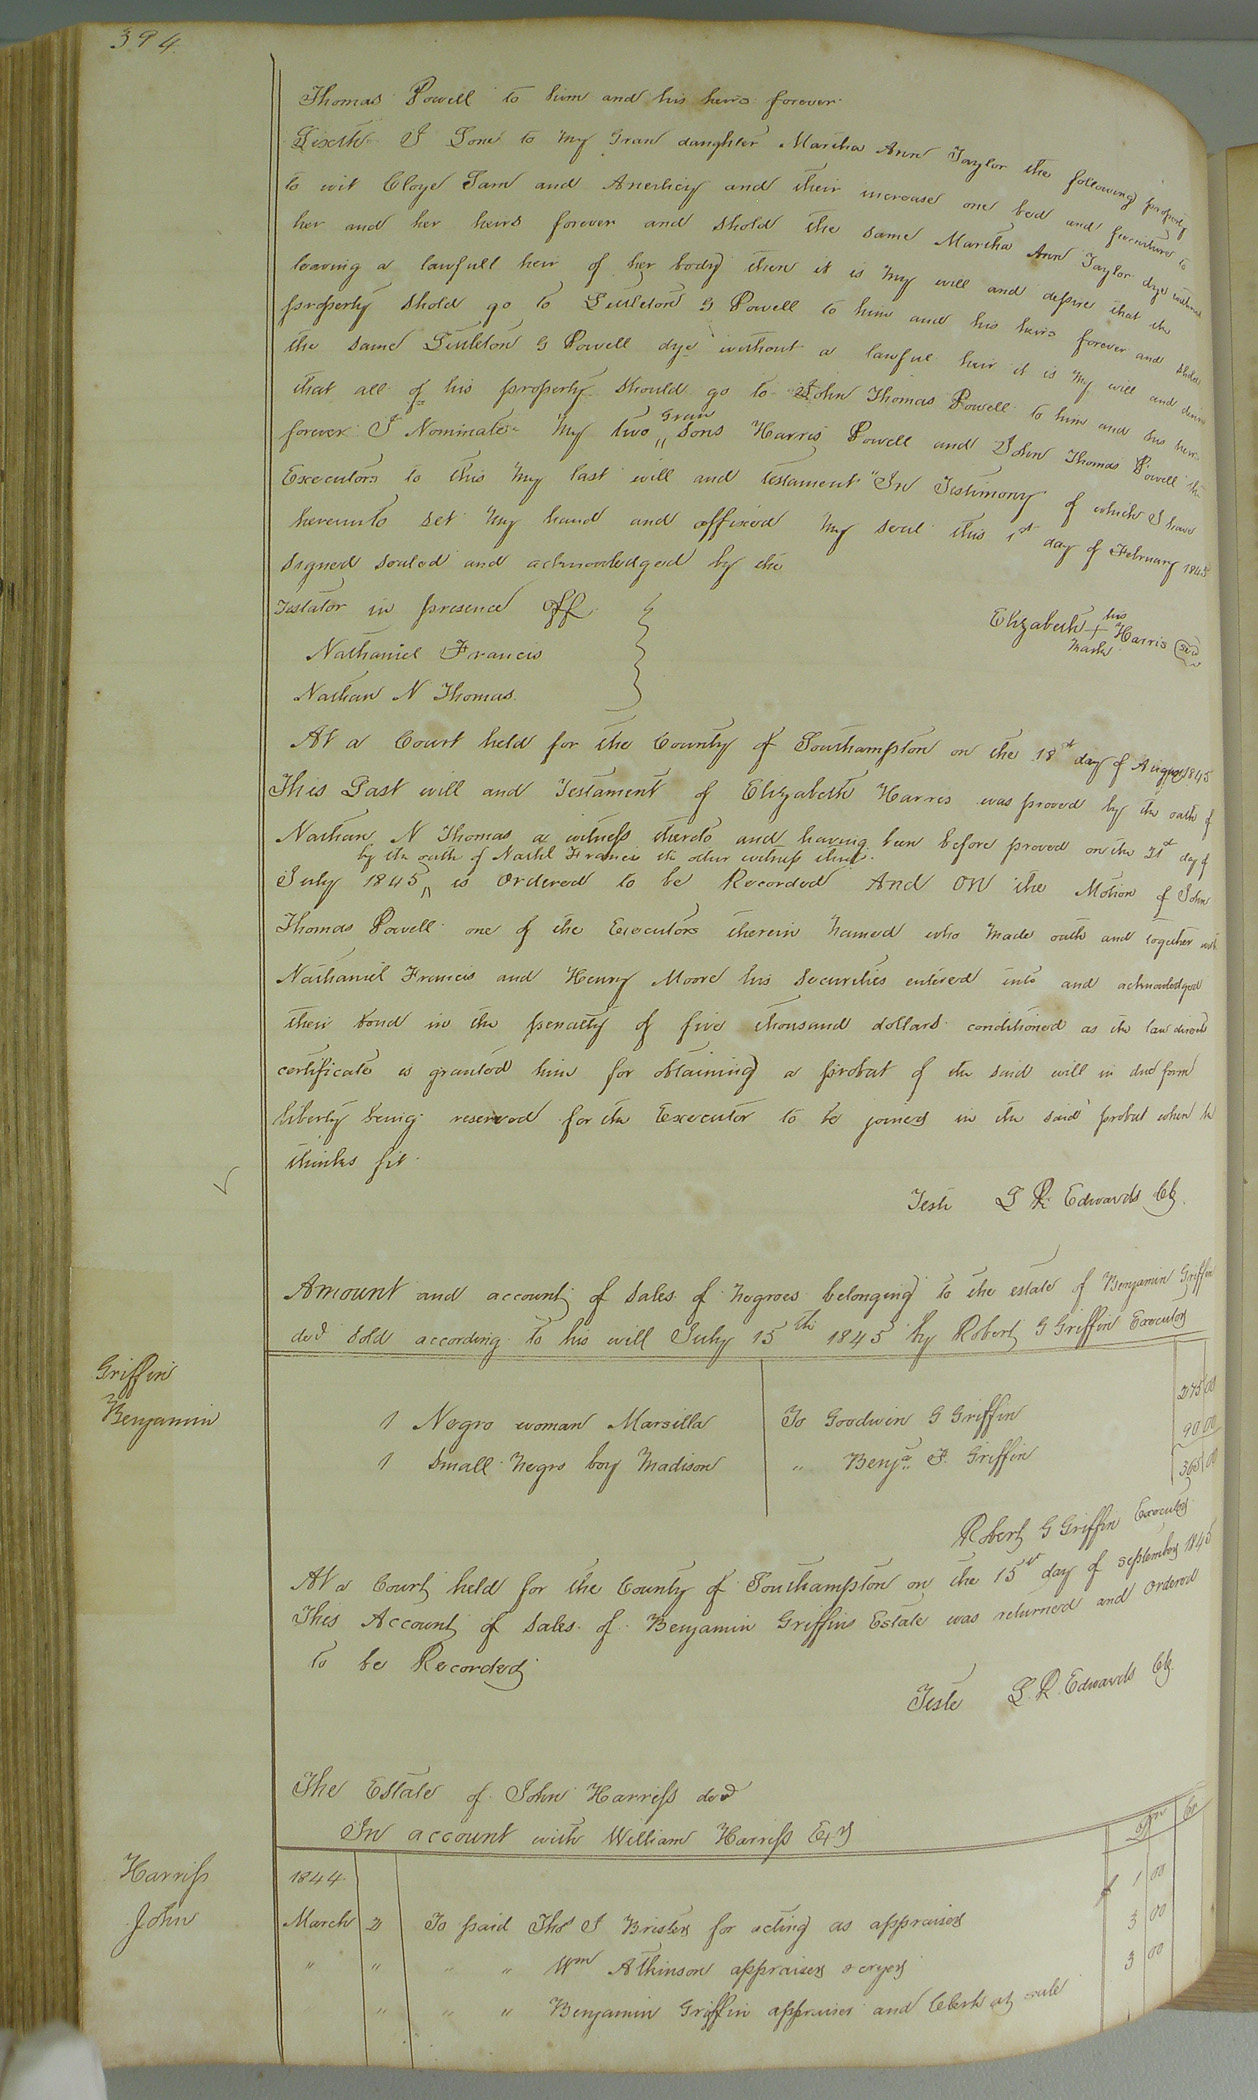 394.
Thomas Powell to him and his heirs forever.
Sixth I Lone to my Gran daughter Martha Ann Taylor the following property
to wit Cloye Sam and Anerlicy and their increase one bed and furniture to
her and her heirs forever and shold the same Martha Ann Taylor dye without
leaving a lawfull heir of her body then it is my will and desire that the
property shold go to Littleton G Powell to him and his heirs forever and shold
the same Littleton G Powell dye without a lawful heir it is my will and desire
that all of his property should go to John Thomas Powell to him and his heirs
forever I Nominate my two Gran sons Harris Powell and John Thomas Powell the
Executors to this my last will and testament "In Testimony of which I have
hereunto set my hand and affixed my seal this 1st day of February 1845
signed sealed and acknowledged by the
Testator in presence off
Elizabeth + Harris
his
mark
Nathaniel Francis
Nathan N Thomas.
At a Court held for the County of Southampton on the 18th day of August 1845
This Last will and Testament of Elizabeth Harris was proved by the oath of
Nathan N Thomas a witness thereto and having been before proved on the 21st day of
by the oath of Nathl Francis the other witness thereto
July 1845 is ordered to be Recorded And on the Motion of John
Thomas Powell one of the Executors therein named who made oath and together with
Nathaniel Francis and Henry Moore his securities entered into and acknowledged
their bond in the penalty of five thousand dollars conditioned as the law directs
certificate is granted him for obtaining a probat of the said will in due form
liberty being reserved for the Executor to be joined in the said probat when he
thinks fit.
Teste L R Edwards Clk.
Amount and account of sales of negroes belonging to the estate of Benjamin Griffin
decd sold according to his will July 15th 1845 by Robert G Griffin Executor
Griffin
Benjamin
1 Negro woman Marsilla To Goodwin G Griffin 275 00
1 Small Negro boy Madison " Benja F. Griffin 90 00
365 00
Robert G Griffin Executor
At a Court held for the County of Southampton on the 15th day of September 1845
This Account of Sales of Benjamin Griffins Estate was returned and Ordered
to be Recorded
Teste L. R. Edwards Clk
The Estate of John Harriss decd
In account with William Harriss Exr
Harriss
John
Dr Cr
1844. 1 00
March 2 To paid Thos J Brister for acting as appraiser 3 00
" " " " Wm Atkinson appraiser & cryer 3 00
" " " Benjamin Griffin appraiser and Clerk at sale